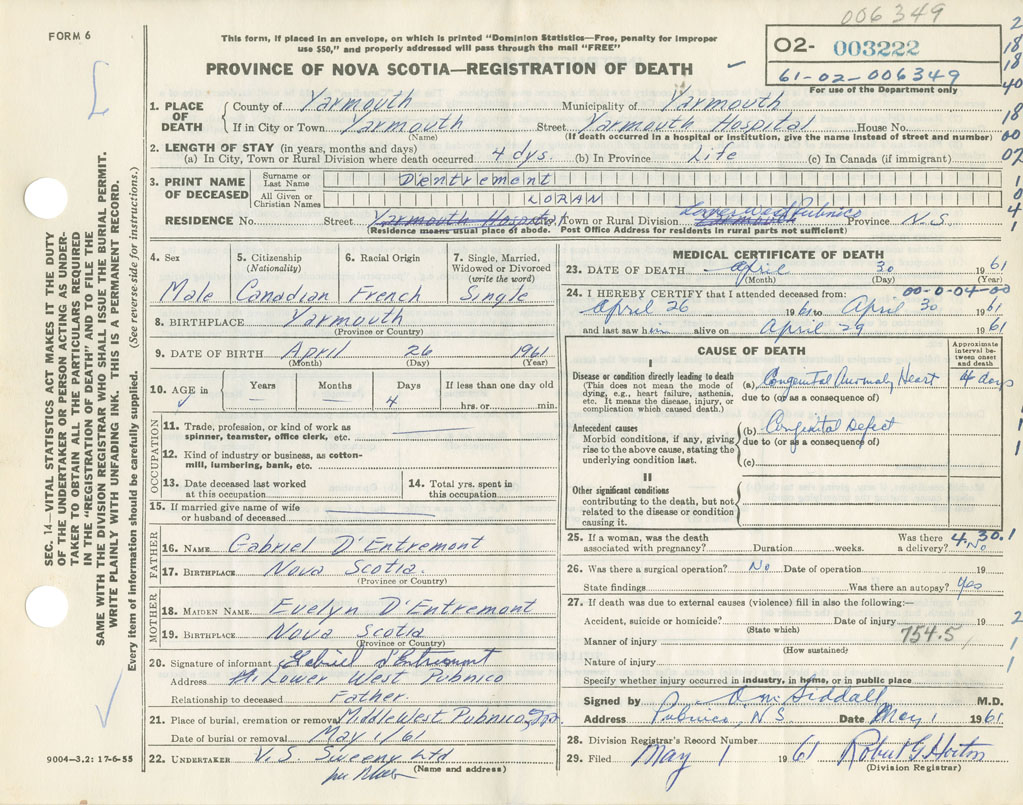 006349
FORM 6
This form, if placed in an envelope, on which is printed "Dominion Statistics—Free, penalty for improper
use $50," and properly addressed will pass through the mail "FREE"
PROVINCE OF NOVA SCOTIA—REGISTRATION OF DEATH
02- 003222
61-02-006349
For use of the Department only
2
18
18
40
18
00
02
1
0
4
1
1. PLACE OF DEATH
County of Yarmouth Municipality of Yarmouth
If in City or Town Yarmouth Street Yarmouth Hospital House No.
(Name) (If death occurred in a hospital or institution, give the name instead of street and number)
2. LENGTH OF STAY (in years, months and days)
(a) In City, Town or Rural Division where death occurred 4 dys. (b) In Province Life (c) In Canada (if immigrant)
3. PRINT NAME OF DECEASED
Surname or Last Name Dentremont
All Given or Christian Names LORAN
RESIDENCE No. Street Yarmouth Hospital City, Town or Rural Division Lower West Pubnico Province N.S.
(Residence means usual place of abode. Post Office Address for residents in rural parts not sufficient)
SEC. 14—VITAL STATISTICS ACT MAKES IT THE DUTY
OF THE UNDERTAKER OR PERSON ACTING AS UNDER-
TAKER TO OBTAIN ALL THE PARTICULARS REQUIRED
IN THE "REGISTRATION OF DEATH" AND TO FILE THE
SAME WITH THE DIVISION REGISTRAR WHO SHALL ISSUE THE BURIAL PERMIT.
WRITE PLAINLY WITH UNFADING INK. THIS IS A PERMANENT RECORD.
Every item of information should be carefully supplied. (See reverse side for instructions.)
4. Sex
Male
5. Citizenship
(Nationality)
Canadian
6. Racial Origin
French
7. Single, Married,
Widowed or Divorced
(write the word)
Single
8. BIRTHPLACE Yarmouth
(Province or Country)
9. DATE OF BIRTH April 26 1961
(Month) (Day) (Year)
10. AGE in Years Months Days If less than one day old
— — 4 hrs. or min.
OCCUPATION
11. Trade, profession, or kind of work as
spinner, teamster, office clerk, etc.
12. Kind of industry or business, as cotton-
mill, lumbering, bank, etc.
13. Date deceased last worked
at this occupation
14. Total yrs. spent in
this occupation
15. If married give name of wife
or husband of deceased
FATHER
16. NAME Gabriel D'Entremont
17. BIRTHPLACE Nova Scotia.
(Province or Country)
MOTHER
18. MAIDEN NAME Evelyn D'Entremont
19. BIRTHPLACE Nova Scotia
(Province or Country)
20. Signature of informant Gabriel d'Entremont
Address Lower West Pubnico
Relationship to deceased Father.
21. Place of burial, cremation or removal Middle West Pubnico,
Date of burial or removal May 1/61
22. UNDERTAKER V. S. Sweeny Ltd
(Name and address)
9004—3.2: 17-6-55
MEDICAL CERTIFICATE OF DEATH
23. DATE OF DEATH April 30 1961
(Month) (Day) (Year)
00-0-04-00
24. I HEREBY CERTIFY that I attended deceased from:
April 26 1961 to April 30 1961
and last saw him alive on April 29 1961
CAUSE OF DEATH
Approximate
interval be-
tween onset
and death
I
Disease or condition directly leading to death
(This does not mean the mode of
dying, e.g., heart failure, asthenia,
etc. It means the disease, injury, or
complication which caused death.)
(a) Congenital Anomaly Heart 4 days
due to (or as a consequence of)
Antecedent causes
Morbid conditions, if any, giving
rise to the above cause, stating the
underlying condition last.
(b) Congenital Defect
due to (or as a consequence of)
(c)
II
Other significant conditions
contributing to the death, but not
related to the disease or condition
causing it.
25. If a woman, was the death
associated with pregnancy? Duration weeks. Was there
a delivery? No
4.30.1
26. Was there a surgical operation? No Date of operation 19
State findings Was there an autopsy? Yes
27. If death was due to external causes (violence) fill in also the following:—
Accident, suicide or homicide? Date of injury 19
(State which)
Manner of injury 754.5
(How sustained)
Nature of injury
Specify whether injury occurred in industry, in home, or in public place
Signed by O m Siddall M.D.
Address Pubnico, N S Date May 1 1961
28. Division Registrar's Record Number
29. Filed May 1 1961 Robert G Horton
(Division Registrar)